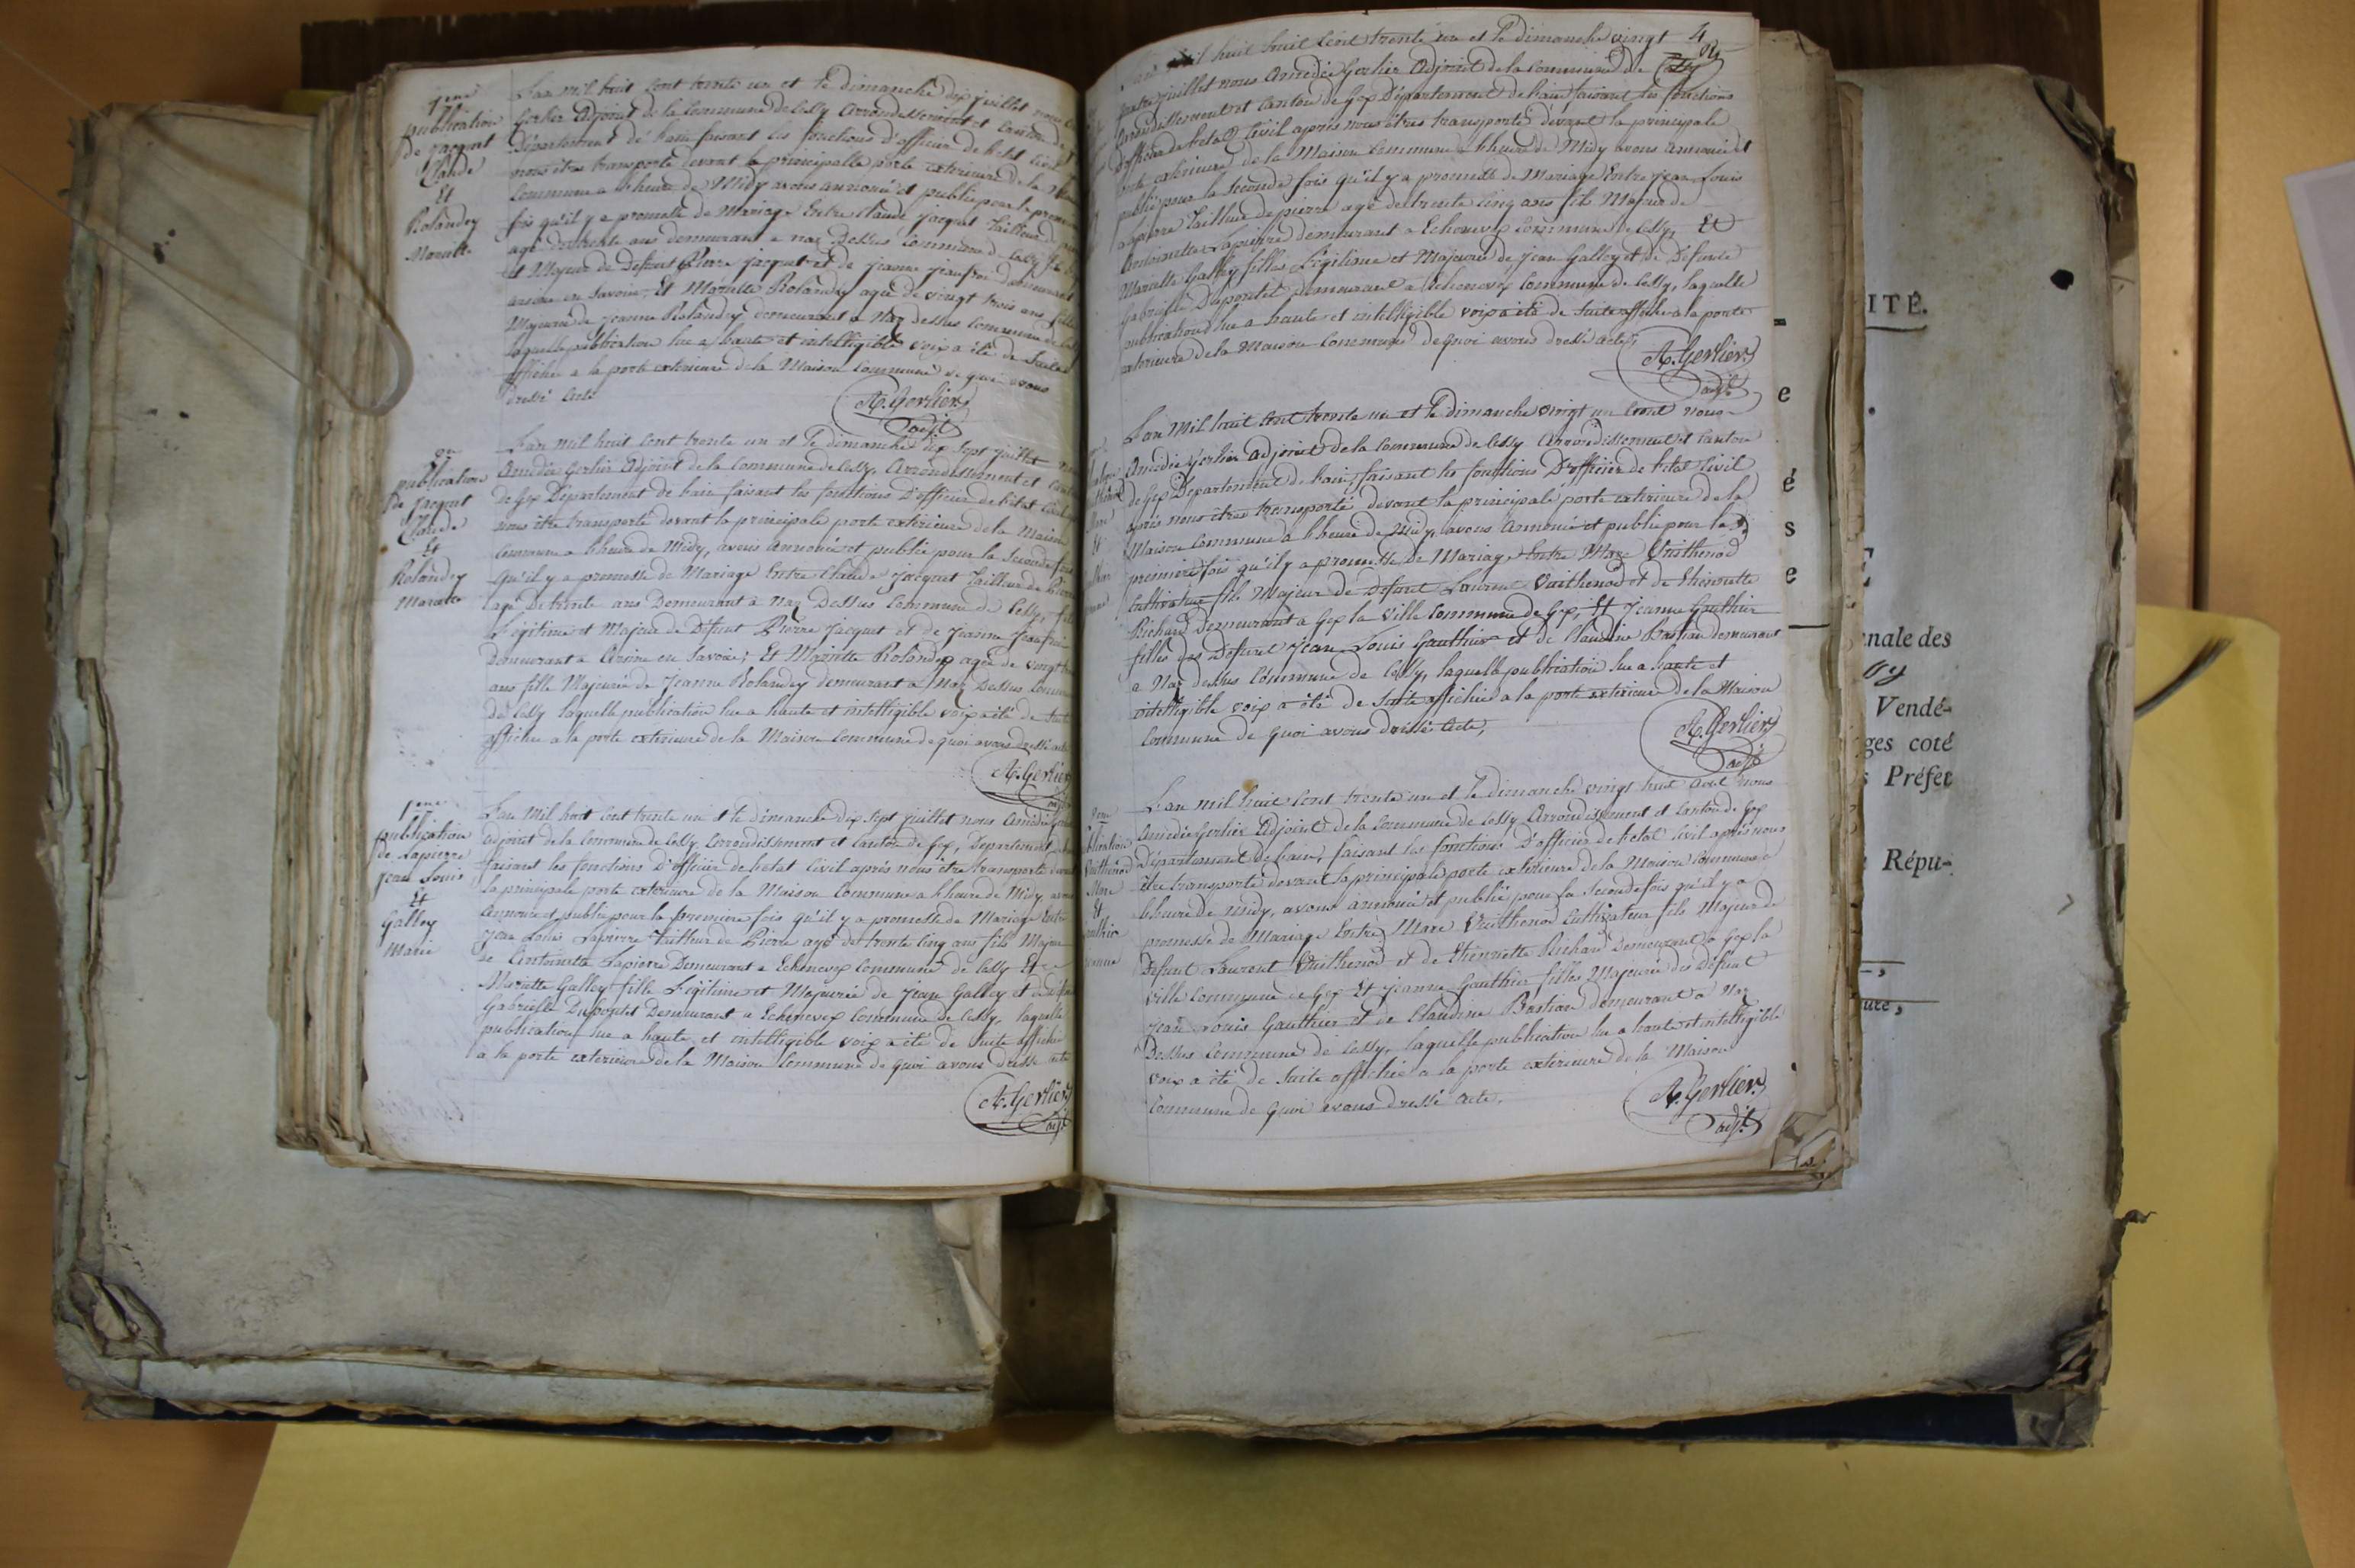 1ere
publication
de jacquet
Claude
Et
Rolandey
Mariette
L'an mil huit cent trente un et le dimanche dix juillet nous
Gerlier Adjoint de la Commune de Cessy Arrondissement et Canton de
Département de l'ain faisant les fonctions d'officier de l'etat Civil
nous être transporté devant la principalle porte exterieure de la
Commune a l'heure de Midy avons annoncé et publié pour la
fois qu'il y a promesse de Mariage Entre Claude jacquet Tailleur de
agé de trente ans demeurant a naz Dessus Commune de Cessy fils
et Majeur de Defunt Pierre jacquet et de jeanne jeanfroi demeurant
en Savoie; Et Mariette Rolandey agée de vingt trois ans fille
Majeure de jeanne Rolandey demeurant a Naz dessus Commune de
laquelle publication lue a haute et intelligible voix a été de suite
affiche a la porte exterieure de la Maison Commune de quoi avons
dressé acte
A. Gerlier
adjt
2me
publication
de jacquet
Claude
Et
Rolandey
Mariette
L'an mil huit cent trente un et le dimanche dix sept juillet
Amedée Gerlier Adjoint de la Commune de Cessy, Arrondissement et
de Gex Département de l'ain faisant les fonctions d'officier de l'etat
nous être transporté devant la principale porte exterieure de la Maison
Commune a l'heure de Midy, avons annoncé et publié pour la seconde fois
Qu'il y a promesse de Mariage Entre Claude jacquet Tailleur de Pierre
agé De trente ans Demeurant a Naz Dessus Commune de Cessy, fils
Légitime et Majeur de Défunt Pierre jacquet et de jeanne jeanfroi
Demeurant a en Savoie; Et Mariette Rolandey agée de vingt
ans fille Majeure de Jeanne Rolandey demeurant a Naz Dessus
de Cessy laquelle publication lue a haute et intelligible voix a été de
affiche a la porte exterieure de la Maison Commune de quoi avons dressé acte
A. Gerlier
adjt
1ere
publication
de Lapierre
jean Louis
Et
Galley
Marie
L'an Mil huit cent trente un et le dimanche dix sept juillet nous Amedée
adjoint de la Commune de Cessy, Arrondissement et Canton de Gex, Departement
faisant les fonctions D'officier de l'etat Civil après nous être transporté
la principale porte exterieure de la Maison Commune a l'heure de Midy, avons
Annoncé et publié pour la première fois qu'il y a promesse de Mariage Entre
jean Louis Lapierre Tailleur de Pierre agé de trente cinq ans fils Majeur
de Antoinette Lapierre Demeurant a Echenevex Commune de Cessy Et
Mariette Galley fille Legitime et Majeure de jean Galley et de
Gabrielle Duportet Demeurant a Echenevex Commune de Cessy, laquelle
publication lue a haute et intelligible voix a été de suite affiche
a la porte exterieure de la Maison Commune de quoi avons dressé acte
A. Gerlier
adjt
4
mil huit cent trente un et le dimanche vingt
quatre juillet nous Amedée Gerlier Adjoint de la Commune de Cessy
Arrondissement et Canton de Gex Département de l'ain faisant les fonctions
d'officier de l'etat Civil après nous être transporté devant la principale
porte exterieure de la Maison Commune a l'heure de Midy avons annoncé et
publié pour la seconde fois qu'il y a promesse de Mariage Entre jean Louis
Lapierre Tailleur de pierre agé de trente cinq ans fils Majeur de
Antoinette Lapierre demeurant a Echenevex Commune de Cessy, Et
Mariette Galley fille Legitime et Majeure de jean Galley et de Defunte
Gabrielle Duportet demeurant a Echenevex Commune de Cessy, laquelle
publication lue a haute et intelligible voix a été de suite affiche a la porte
exterieure de la Maison Commune de quoi avons dressé acte
A. Gerlier
adjt
L'an Mil huit cent trente un et le dimanche vingt un aout nous
Amedée Gerlier Adjoint de la Commune de Cessy Arrondissement et Canton
de Gex Departement de l'ain, faisant les fonctions D'officier de l'etat Civil
après nous être transporté devant la principale porte exterieure de la
Maison Commune a l'heure de Midy, avons Annoncé et publié pour la
première fois qu'il y a promesse De Mariage Entre Marc Vuithenod
Cultivateur fils Majeur de Defunt Laurent Vuithenod et de Thénriette
Richard Demeurant a Gex la Ville Commune de Gex, Et Jeanne Gauthier
filles des Defunt Jean Louis Gauthier et de Claudine Bastian demeurant
a Naz dessus Commune de Cessy, laquelle publication lue a haute et
intelligible voix a été de suite affichée a la porte exterieure de la Maison
Commune de quoi avons dressé acte,
A. Gerlier
adjt
2me
Vuithenod
Marc
Et
L'an mil huit cent trente un et le dimanche vingt huit aout nous
Amedée Gerlier Adjoint de la Commune de Cessy Arrondissement et Canton de Gex
Département de l'ain, faisant les fonctions D'officier de l'etat Civil après nous
être transporté devant la principale porte exterieure de la Maison Commune a
l'heure de midy, avons annoncé et publié pour la seconde fois qu'il y a
promesse de Mariage Entre Marc Vuithenod Cultivateur fils Majeur de
Defunt Laurent Vuithenod et de Thénriette Richard Demeurant a Gex la
Ville Commune de Gex Et Jeanne Gauthier filles Majeure des Défunt
Jean Louis Gauthier et de Claudine Bastian demeurant a Naz
Dessus Commune de Cessy, laquelle publication lue a haute et intelligible
voix a été de suite affichée a la porte exterieure de la Maison
Commune de quoi avons dressé acte.
A. Gerlier
adjt
e
é
s
e
ITÉ.
nale des
Vendé-
ges coté
Préfet
Répu-